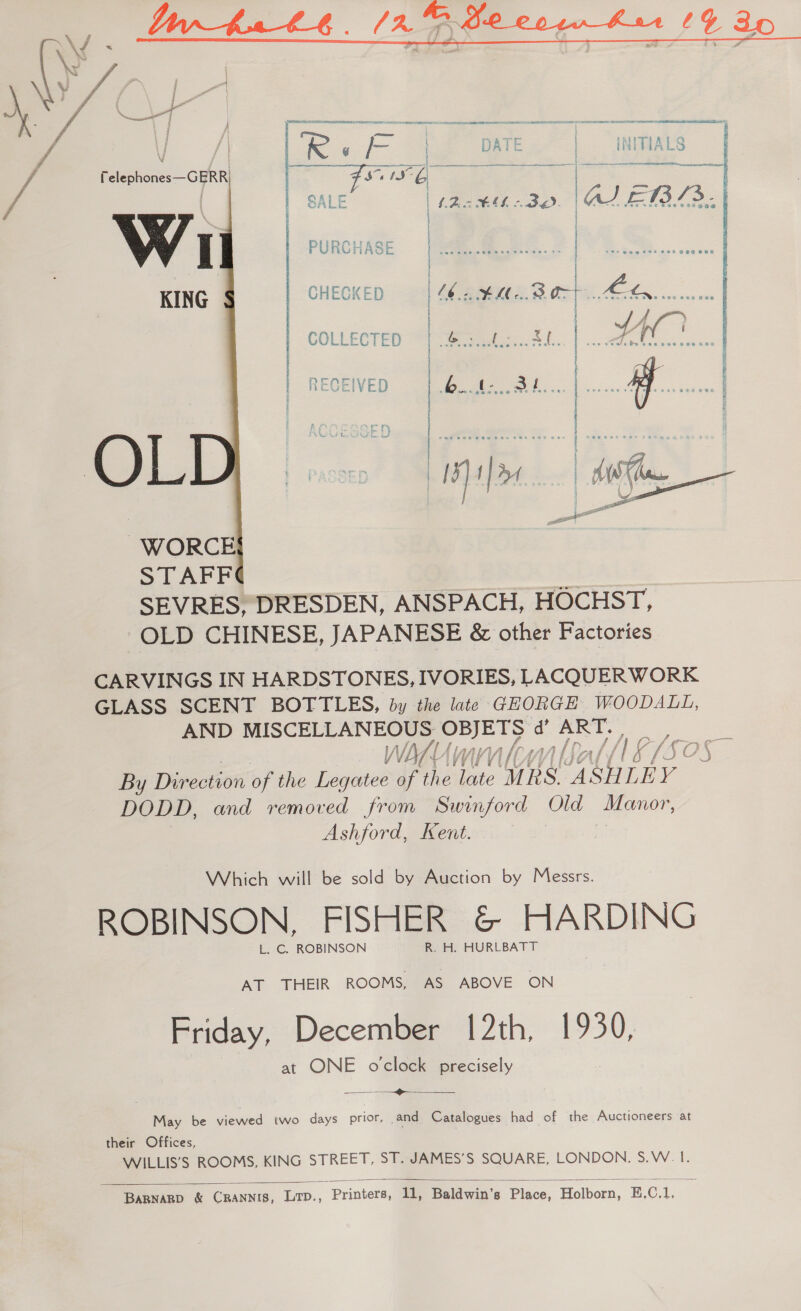 12th December 1930
R & F DATE INITIALS
Telephones—GERR
SALE 12.XII.30. W.E.B.B.
Wil
PURCHASE
KING S
CHECKED 16.XII.30
COLLECTED 6.1.31
RECEIVED 6.1.31
ACCESSED
OLD
PASSED
WORCES
STAFFO
SEVRES, DRESDEN, ANSPACH, HÖCHST,
OLD CHINESE, JAPANESE & other Factories
CARVINGS IN HARDSTONES, IVORIES, LACQUERWORK
GLASS SCENT BOTTLES, by the late GEORGE WOODALL,
AND MISCELLANEOUS OBJETS d' ART.
By Direction of the Legatee of the late MRS. ASHLEY
DODD, and removed from Swinford Old Manor,
Ashford, Kent.
Which will be sold by Auction by Messrs.
ROBINSON, FISHER & HARDING
L. C. ROBINSON R. H. HURLBATT
AT THEIR ROOMS, AS ABOVE ON
Friday, December 12th, 1930,
at ONE o'clock precisely
May be viewed two days prior, and Catalogues had of the Auctioneers at
their Offices,
WILLIS'S ROOMS, KING STREET, ST. JAMES'S SQUARE, LONDON, S.W. 1.
BARNARD & CRANNIS, LTD., Printers, 11, Baldwin's Place, Holborn, E.C.1.